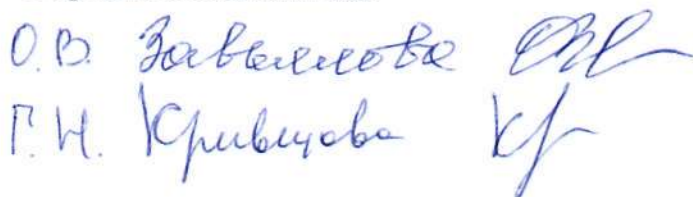 О.В. Завьялова
Г.Н. Кривцова Кр